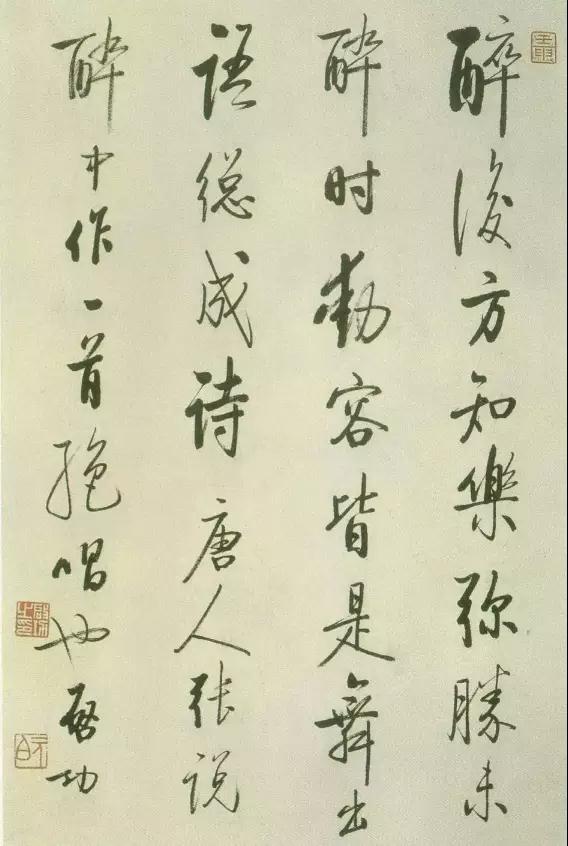 醉後方知樂弥勝未
醉时動容皆是舞出
语総成诗唐人张说
醉中作一首绝唱也啓功
元白